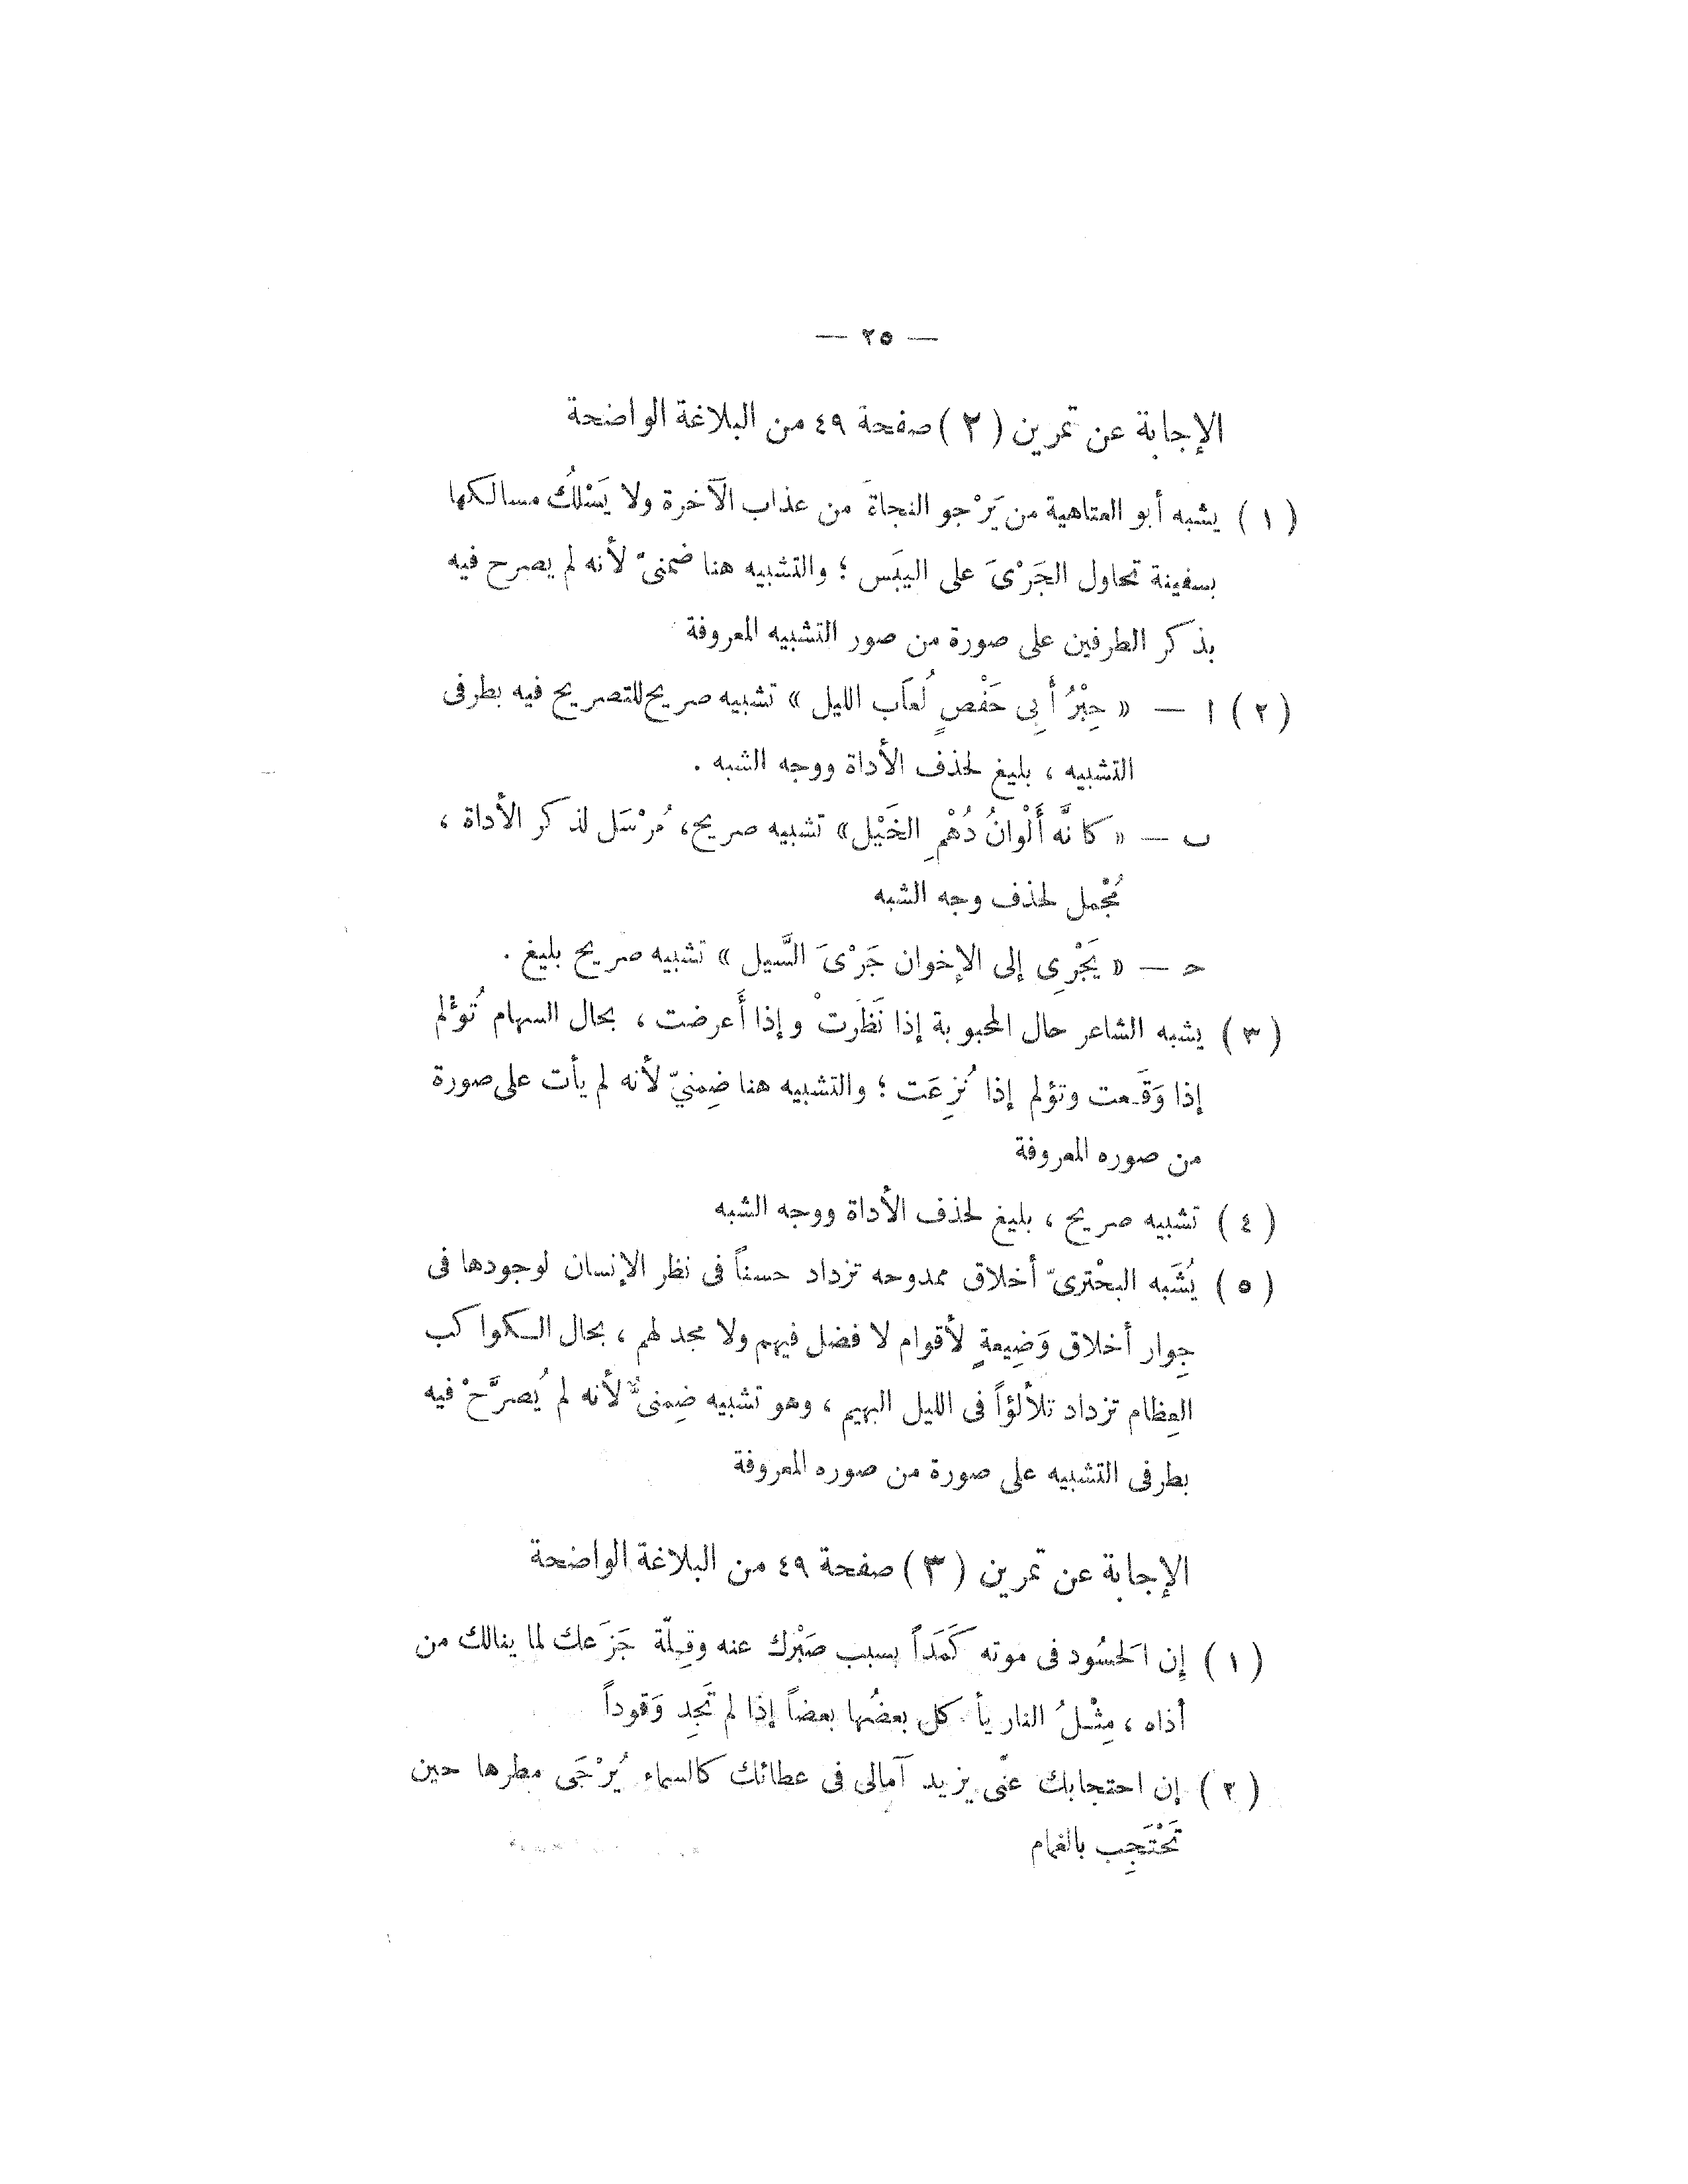 — ٢٥ —
الإجابة عن تمرين ( ٢ ) صفحة ٤٩ من البلاغة الواضحة
( ١ ) يشبه أبو العتاهية من يَرْجو النجاةَ من عذاب الآخرة ولا يَسْلكُ مسالكها
بسفينة تحاول الجَرْىَ على اليبَس ؛ والتشبيه هنا ضمنىّ لأنه لم يصرح فيه
بذكر الطرفين على صورة من صور التشبيه المعروفة
( ٢ ) ا — « حِبْرُ أَبِى حَفْصٍ لُعاَب الليل » تشبيه صريح للتصريح فيه بطرفى
التشبيه ، بليغ لحذف الأداة ووجه الشبه .
ب — « كانَّه أَلْوانُ دُهْمِ الخَيْل» تشبيه صريح، مُرْسَل لذكر الأداة ،
مُجْمل لحذف وجه الشبه
ح — « يَجْرِى إلى الإخوان جَرْىَ السَّيل » تشبيه صريح بليغ .
( ٣ ) يشبه الشاعر حال المحبوبة إذا نَظَرَتْ وإذا أَعرضت ، بحال السهام تُوْلم
إذا وَقَعت وتؤلم إذا نُزِعَت ؛ والتشبيه هنا ضِمنيّ لأنه لم يأت على صورة
من صوره المعروفة
( ٤ ) تشبيه صريح ، بليغ لحذف الأداة ووجه الشبه
( ٥ ) يُشَبه البحْترىّ أخلاق ممدوحه تزداد حسناً فى نظر الإنسان لوجودها فى
جِوار أخلاق وَضِيعةٍ لأقوام لا فضل فيهم ولا مجد لهم ، بحال الكواكب
العِظام تزداد تلألؤاً فى الليل البهيم ، وهو تشبيه ضِمنىٌّ لأنه لم يُصرَّحْ فيه
بطرفى التشبيه على صورة من صوره المعروفة
الإجابة عن تمرين ( ٣ ) صفحة ٤٩ من البلاغة الواضحة
( ١ ) إن الَحسُود فى موته كَمَداً بسبب صَبْرك عنه وقِلّة جَزَعك لما ينالك من
أذاه ، مِثْلُ النار يأكل بعضُها بعضاً إذا لم تَجِد وَقوداً
( ٢ ) إن احتجابك عنّى يزيد آمالى فى عطائك كالسماء يُرْجَى مطرها حين
تَحْتَجِب بالغمام